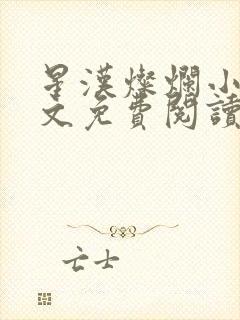 星漢燦爛小
文免費閱讀
亡士